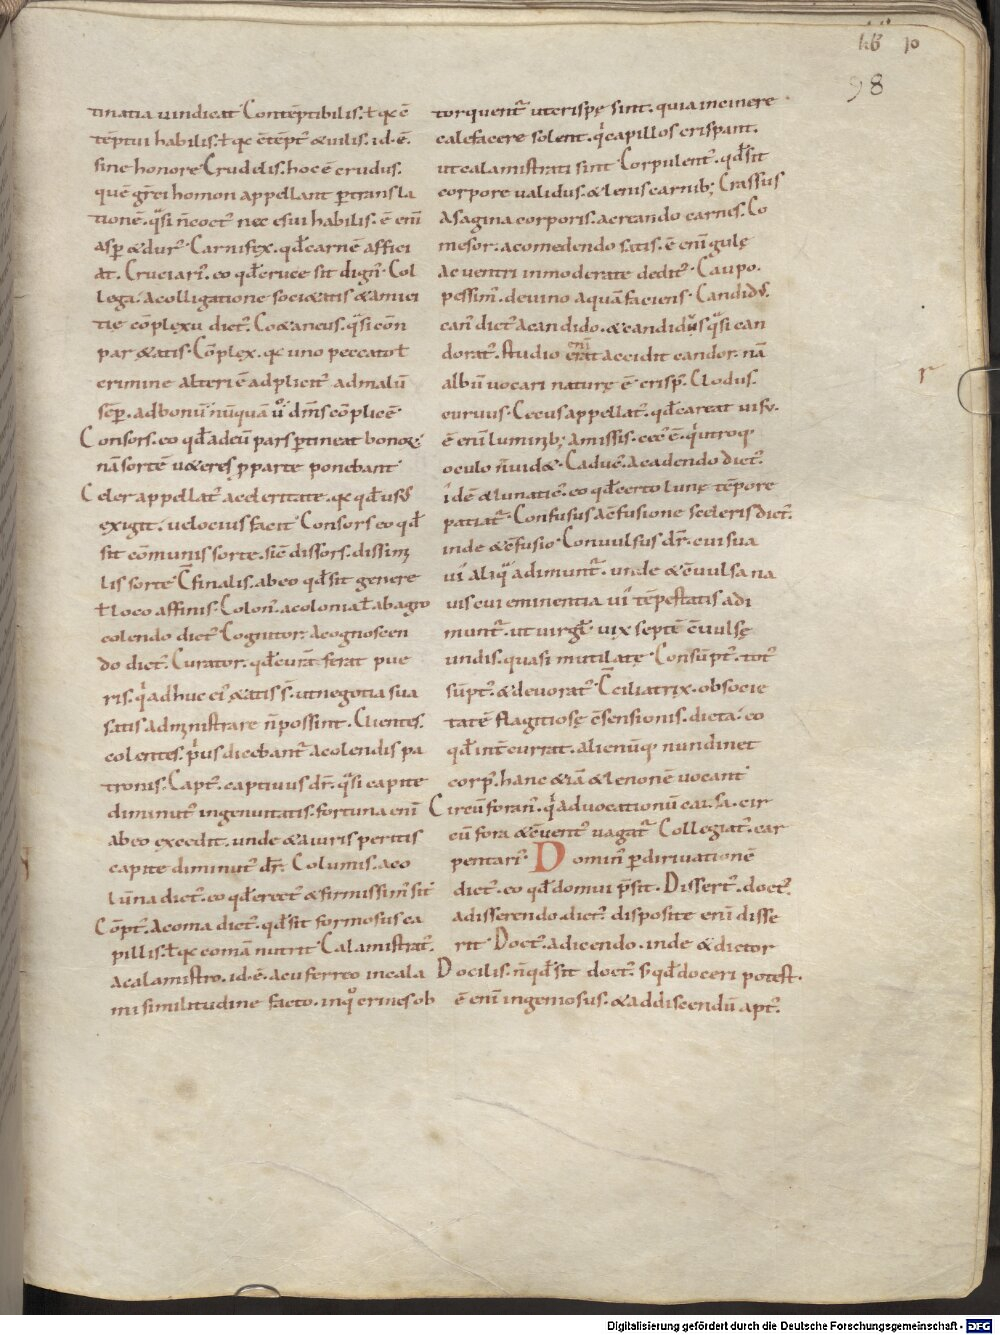 98
tinatia uindicat. Contēptibilis. ł qc ē
tēptui habilis. ł qc ētēpt᷒ &uilis. id.ē.
sine honore. Crudelis. hoc ē crudus.
quē greci homon appellant ꝑtransla
tionē. qᵃsi n̄coct᷒ nec esui habilis. ē enī
asꝑ &dur᷒. Carnifex. qd̄carnē affici
at. Cruciari᷒. eo qd̄cruce sit dign᷒. Col
lega. acolligatione soci&atis &amici
tię cōplexu dict᷒. Co&aneus. qᵃsi cōn
par &atis. Cōplex. qc uno peccato ł
crimine alteri ē adplicit᷒ admalū
sēꝑ. adbonū nūquā u͛ dm̄s cōplic ē.
Consors. eo qd̄adeū pars ꝑtineat bonoꝝ.
nā sortē u&eres ꝓparte ponebant.
Celer appellat᷒ aceleritate. qc qd̄usus
exigit. uelocius facit. Consors eo qd̄
sit cōmunis sorte. sic̄ dissors. dissimi
lis sorte. Cfinalis. abeo qd̄sit genere
ł loco affinis. Colon᷒. acolonia ł abagro
colendo dict᷒. Cognitor. acognoscen
do dict᷒. Curator. qd̄curā ferat pue
ris. qⁱadhuc ei᷒ &atis s̄. utnegotia sua
satis administrare n̄possint. Clientes.
colentes. pⁱus dicebant᷒ acolendis pa
tronis. Capt᷒. captiuus dr̄. qᵃsi capite
diminut᷒ ingenuitatis. fortuna enī
abeo excedit. unde &aiuris peritis
capite diminut᷒ dr̄. Columis. aco
lūna dict᷒. eo qd̄erect᷒ &firmissim᷒ sit.
Cōpt᷒. acoma dict᷒. qd̄sit formosus ca
pillis. ł qc comā nutrit. Calamistrat᷒.
acalamistro. id.ē. acu ferreo incala
mi similitudine facto. inqᵒ crines ob
torquent᷒ ut crispę sint. quia incinere
calefacere solent. qⁱcapillos crispant.
ut calamistrati sint. Corpulent᷒. qd̄sit
corpore ualidus. &lenis carnib;. Crassus
asagina corporis. acreando carnes. Co
mesor. acomedendo satis. ē enī gulę
ac uentri inmoderate dedit᷒. Caupo.
pessim᷒. deuino aquā faciens. Candid᷒.
can᷒ dict᷒ acandido. &candidus qᵃsi can
dorat᷒. studio enī accidit candor. nā
albū uocari naturę ē. crisp᷒. Clodus.
curuus. Cecus appellat᷒. qd̄careat uisu.
ē enī luminib; amissis. cec᷒ ē. qⁱutroq;
oculo n̄uid&. Caduc᷒. acadendo dict᷒.
idē &lunatic᷒. eo qd̄certo lunę tēpore
patiat᷒. Confusus acfusione sceleris dict᷒.
inde &cfusio. Conuulsus dr̄. cui sua
ui aliqᵃ adimunt᷒. unde &cuulsa na
uis cui eminentia ui tēpestatis adi
munt᷒. ut uirgł. uix septē cuulsę
undis. quasi mutilatę. Consūpt᷒. tot᷒
sūpt᷒. &deuorat᷒. Cciliatrix. obsocie
tatē flagitiosę csensionis. dicta. eo
qd̄int̄currat. alienūq; nundinet
corp᷒. hanc &iā &lenonē uocant.
Circūforan᷒. qⁱaduocationū causa. cir
cū fora &cuent᷒ uagat᷒. Collegiat᷒. car
pentari᷒. Domin᷒ ꝑdiriuationē
dict᷒. eo qd̄domui p̄sit. Dissert᷒. doct᷒.
adisserendo. dict᷒. disposite enī disse
rit. Doct᷒. adicendo. inde &dictor
Docilis. n̄qd̄sit doct᷒. s; qd̄doceri potest.
ē enī ingeniosus. &addiscendū apt᷒.
Digitalisierung gefördert durch die Deutsche Forschungsgemeinschaft - DFG